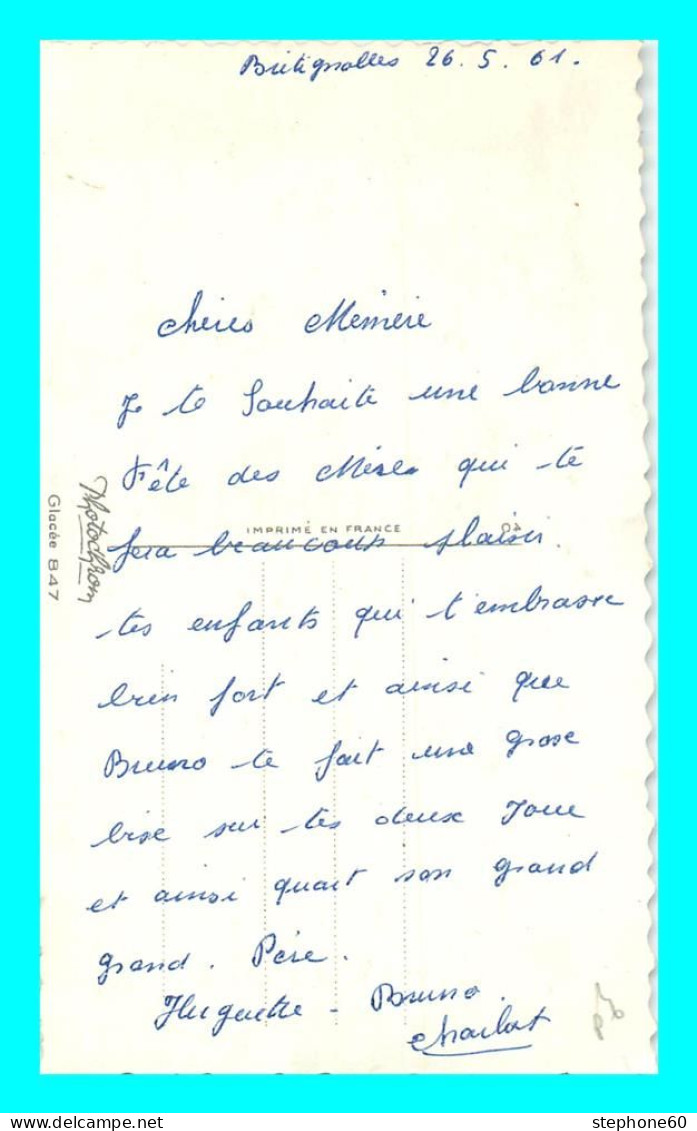 Bretignolles 26. 5. 61.
chères Mémère
Je te souhaite une bonne
Fête des Mères qui te
IMPRIMÉ EN FRANCE
fera beaucoup plaisir.
Photochrom
Glacée 847
tes enfants qui t'embrasse
bien fort et ainsi que
Bruno te fait une grose
bise sur tes deux Joue
et ainsi quart son grand
grand. Père.
Huguette - Bruno.
Charlot
stephone60